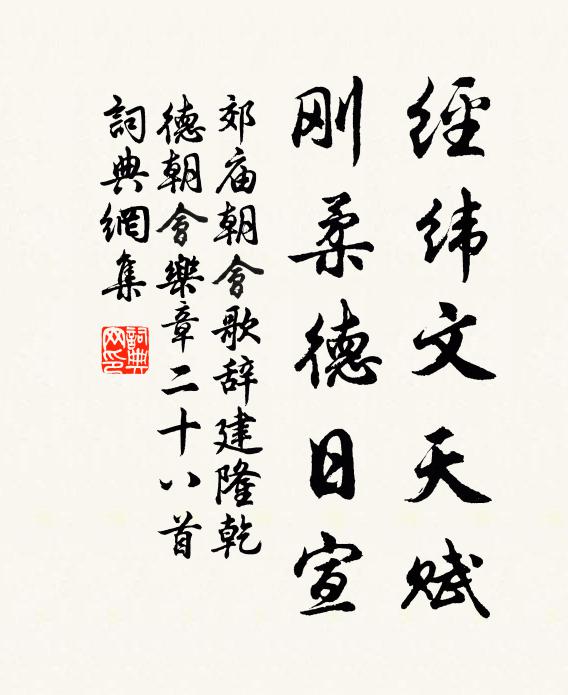 經緯文天賦
刚柔德日宣
郊庙朝會歌辞建隆乾
德朝會樂章二十八首
詞典網集
詞典网印